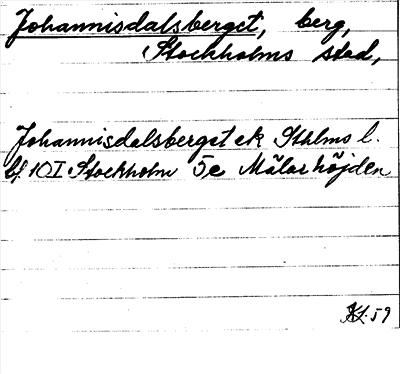 Johannisdalsberget, berg,
Stockholms stad,
Johannisdalsberget ek Sthlms l.
bl. 10I Stockholm 5e Mälarhöjden
59